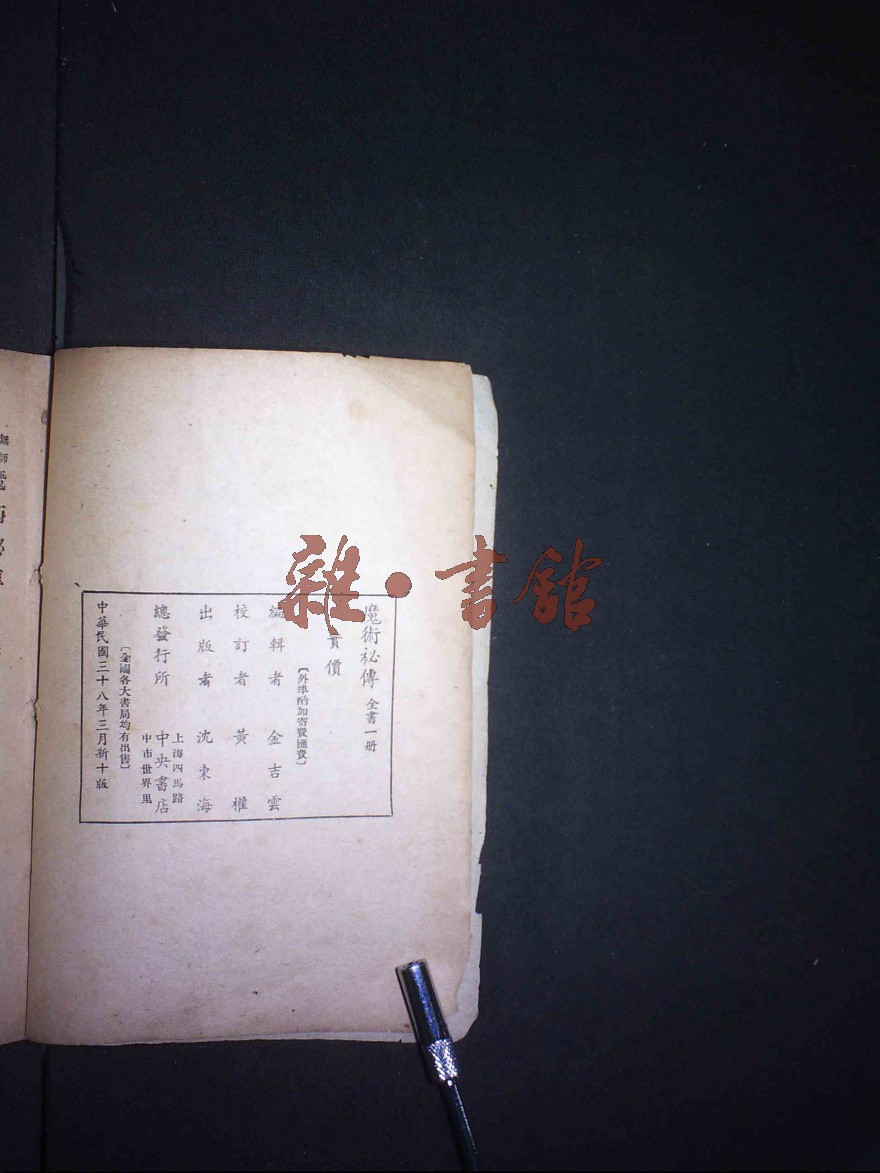 魔術祕傳 全書一册
實價
〔外埠酌加寄費匯費〕
編輯者 金吉雲
校訂者 黃權
出版者 沈東海
總發行所 上海四馬路 中央書店 中市世界里
〔全國各大書局均有出售〕
中華民國三十八年三月新十版
無師
雜·書館